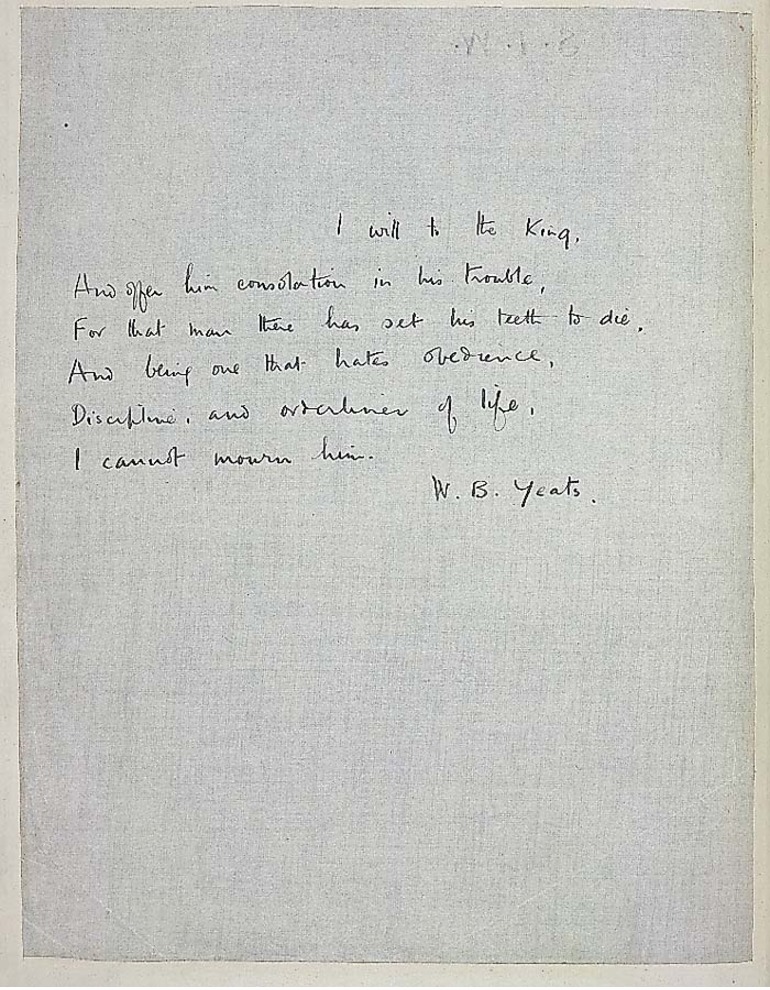 I will to the King,
And offer him consolation in his trouble,
For that man there has set his teeth to die,
And being one that hates obedience,
Discipline, and orderliness of life,
I cannot mourn him.
W. B. Yeats.